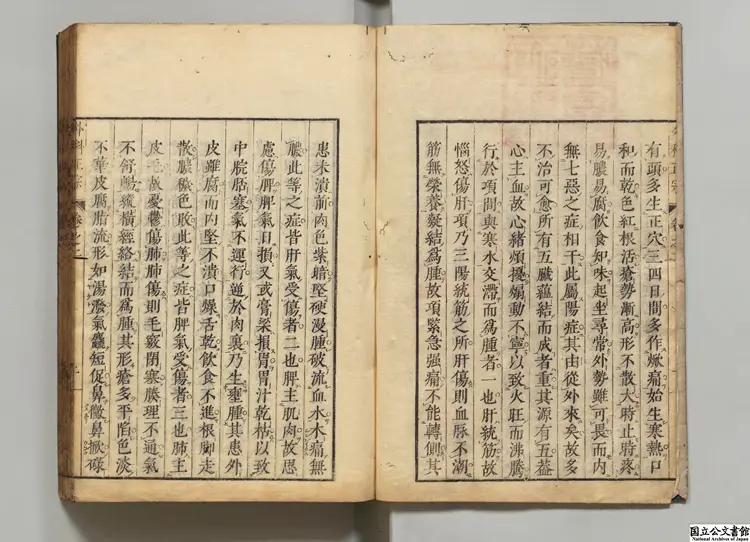 有頭多生正穴三四日間多作焮痛始生寒熱口
和而乾色紅根活瘡勢漸高形不散大時止時疼
易膿易腐飲食知味起坐尋常外勢雖可畏而内
無七惡之症相干此屬陽症其由從外來矣故多
不治可愈所有五臟蘊結而成者重其源有五葢
心主血故心緒煩擾煽動不寧以致火旺而沸騰
行於項間與寒水交滯而爲腫者一也肝統筋故
惱怒傷肝項乃三陽統筋之所肝傷則血脉不潮
筋無榮養凝結爲腫故項緊急强痛不能轉側其
患未潰前肉色紫暗堅硬漫腫破流血水木痛無
膿此等之症皆肝氣受傷者二也脾主肌肉故思
慮傷脾脾氣日損又或膏粱損胃胃汁乾枯以致
中脘痞塞氣不運行逆於肉裏乃生壅腫其患外
皮雖腐而内堅不潰口燥舌乾飲食不進根脚走
散膿穢色敗此等之症皆脾氣受傷者三也肺主
皮毛故憂鬱傷肺肺傷則毛竅閉塞腠理不通氣
不舒暢橫經絡結而爲腫其形瘡多平陷色淡
不華皮腐脂流形如湯潑氣麤短促鼻微鼻掀碌
外科正宗
卷之二
国立公文書館
National Archives of Japan